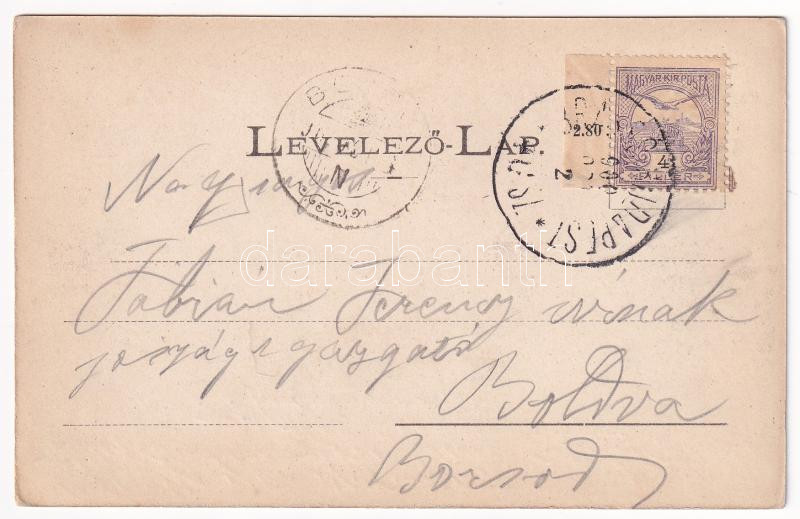 MAGYAR KIR. POSTA
2.80
BUDAPEST
LEVELEZŐ-LAP.
Nagyságos
Fábián Ferencz úrnak
jószágigazgató
Boldva
Borsod
darabanth